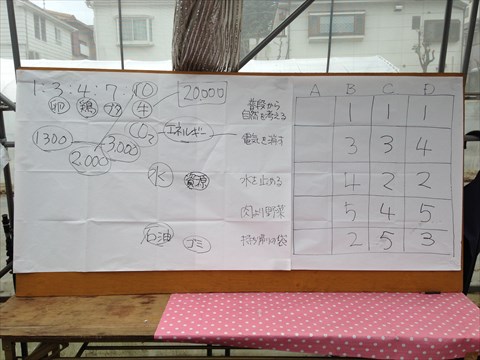 1:3:4:7:10
卵 鶏 ブタ 牛 20,000
1300 2,000 3,000
O2 エネルギー
水 資源
石油 ゴミ
A B C D
普段から
自然を考える 1 1 1
電気を消す 3 3 4
水を止める 4 2 2
肉より野菜 5 4 5
持ち帰りの袋 2 5 3